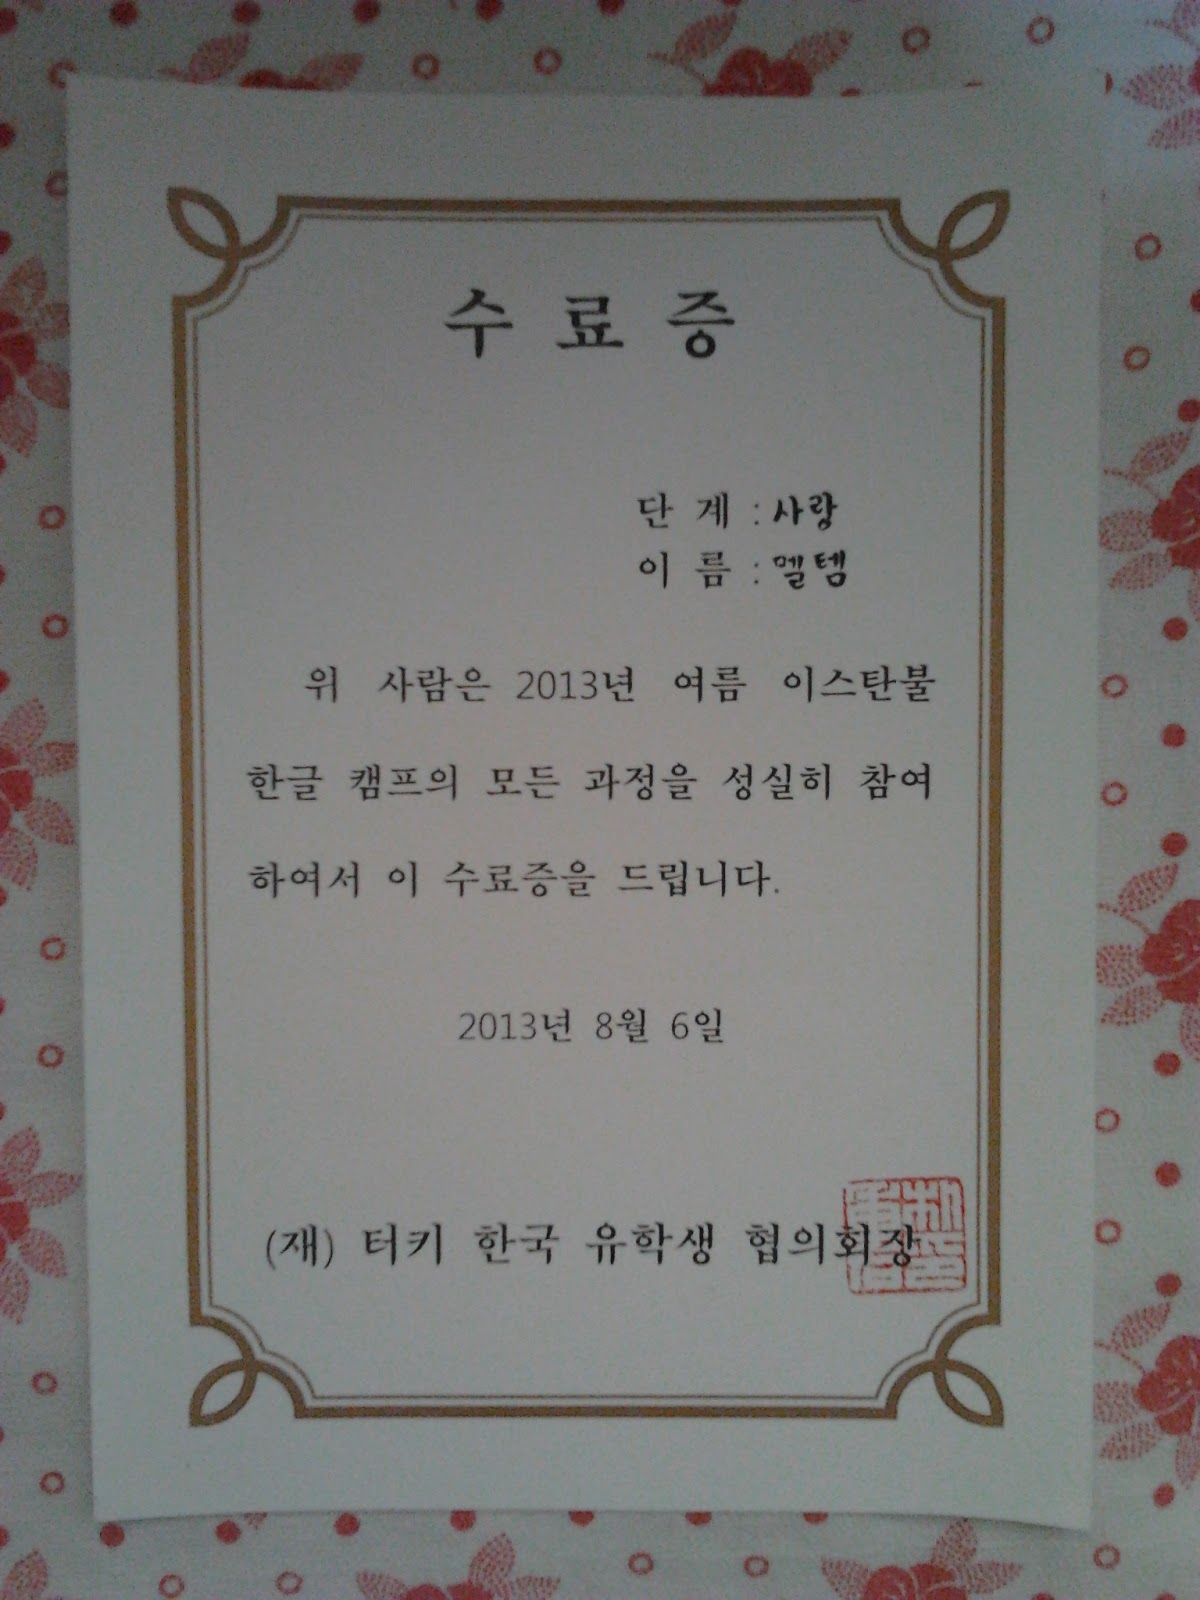 수 료 증
단 계 : 사랑
이 름 : 멜템
위 사람은 2013년 여름 이스탄불
한글 캠프의 모든 과정을 성실히 참여
하여서 이 수료증을 드립니다.
2013년 8월 6일
(재) 터키 한국 유학생 협의회장